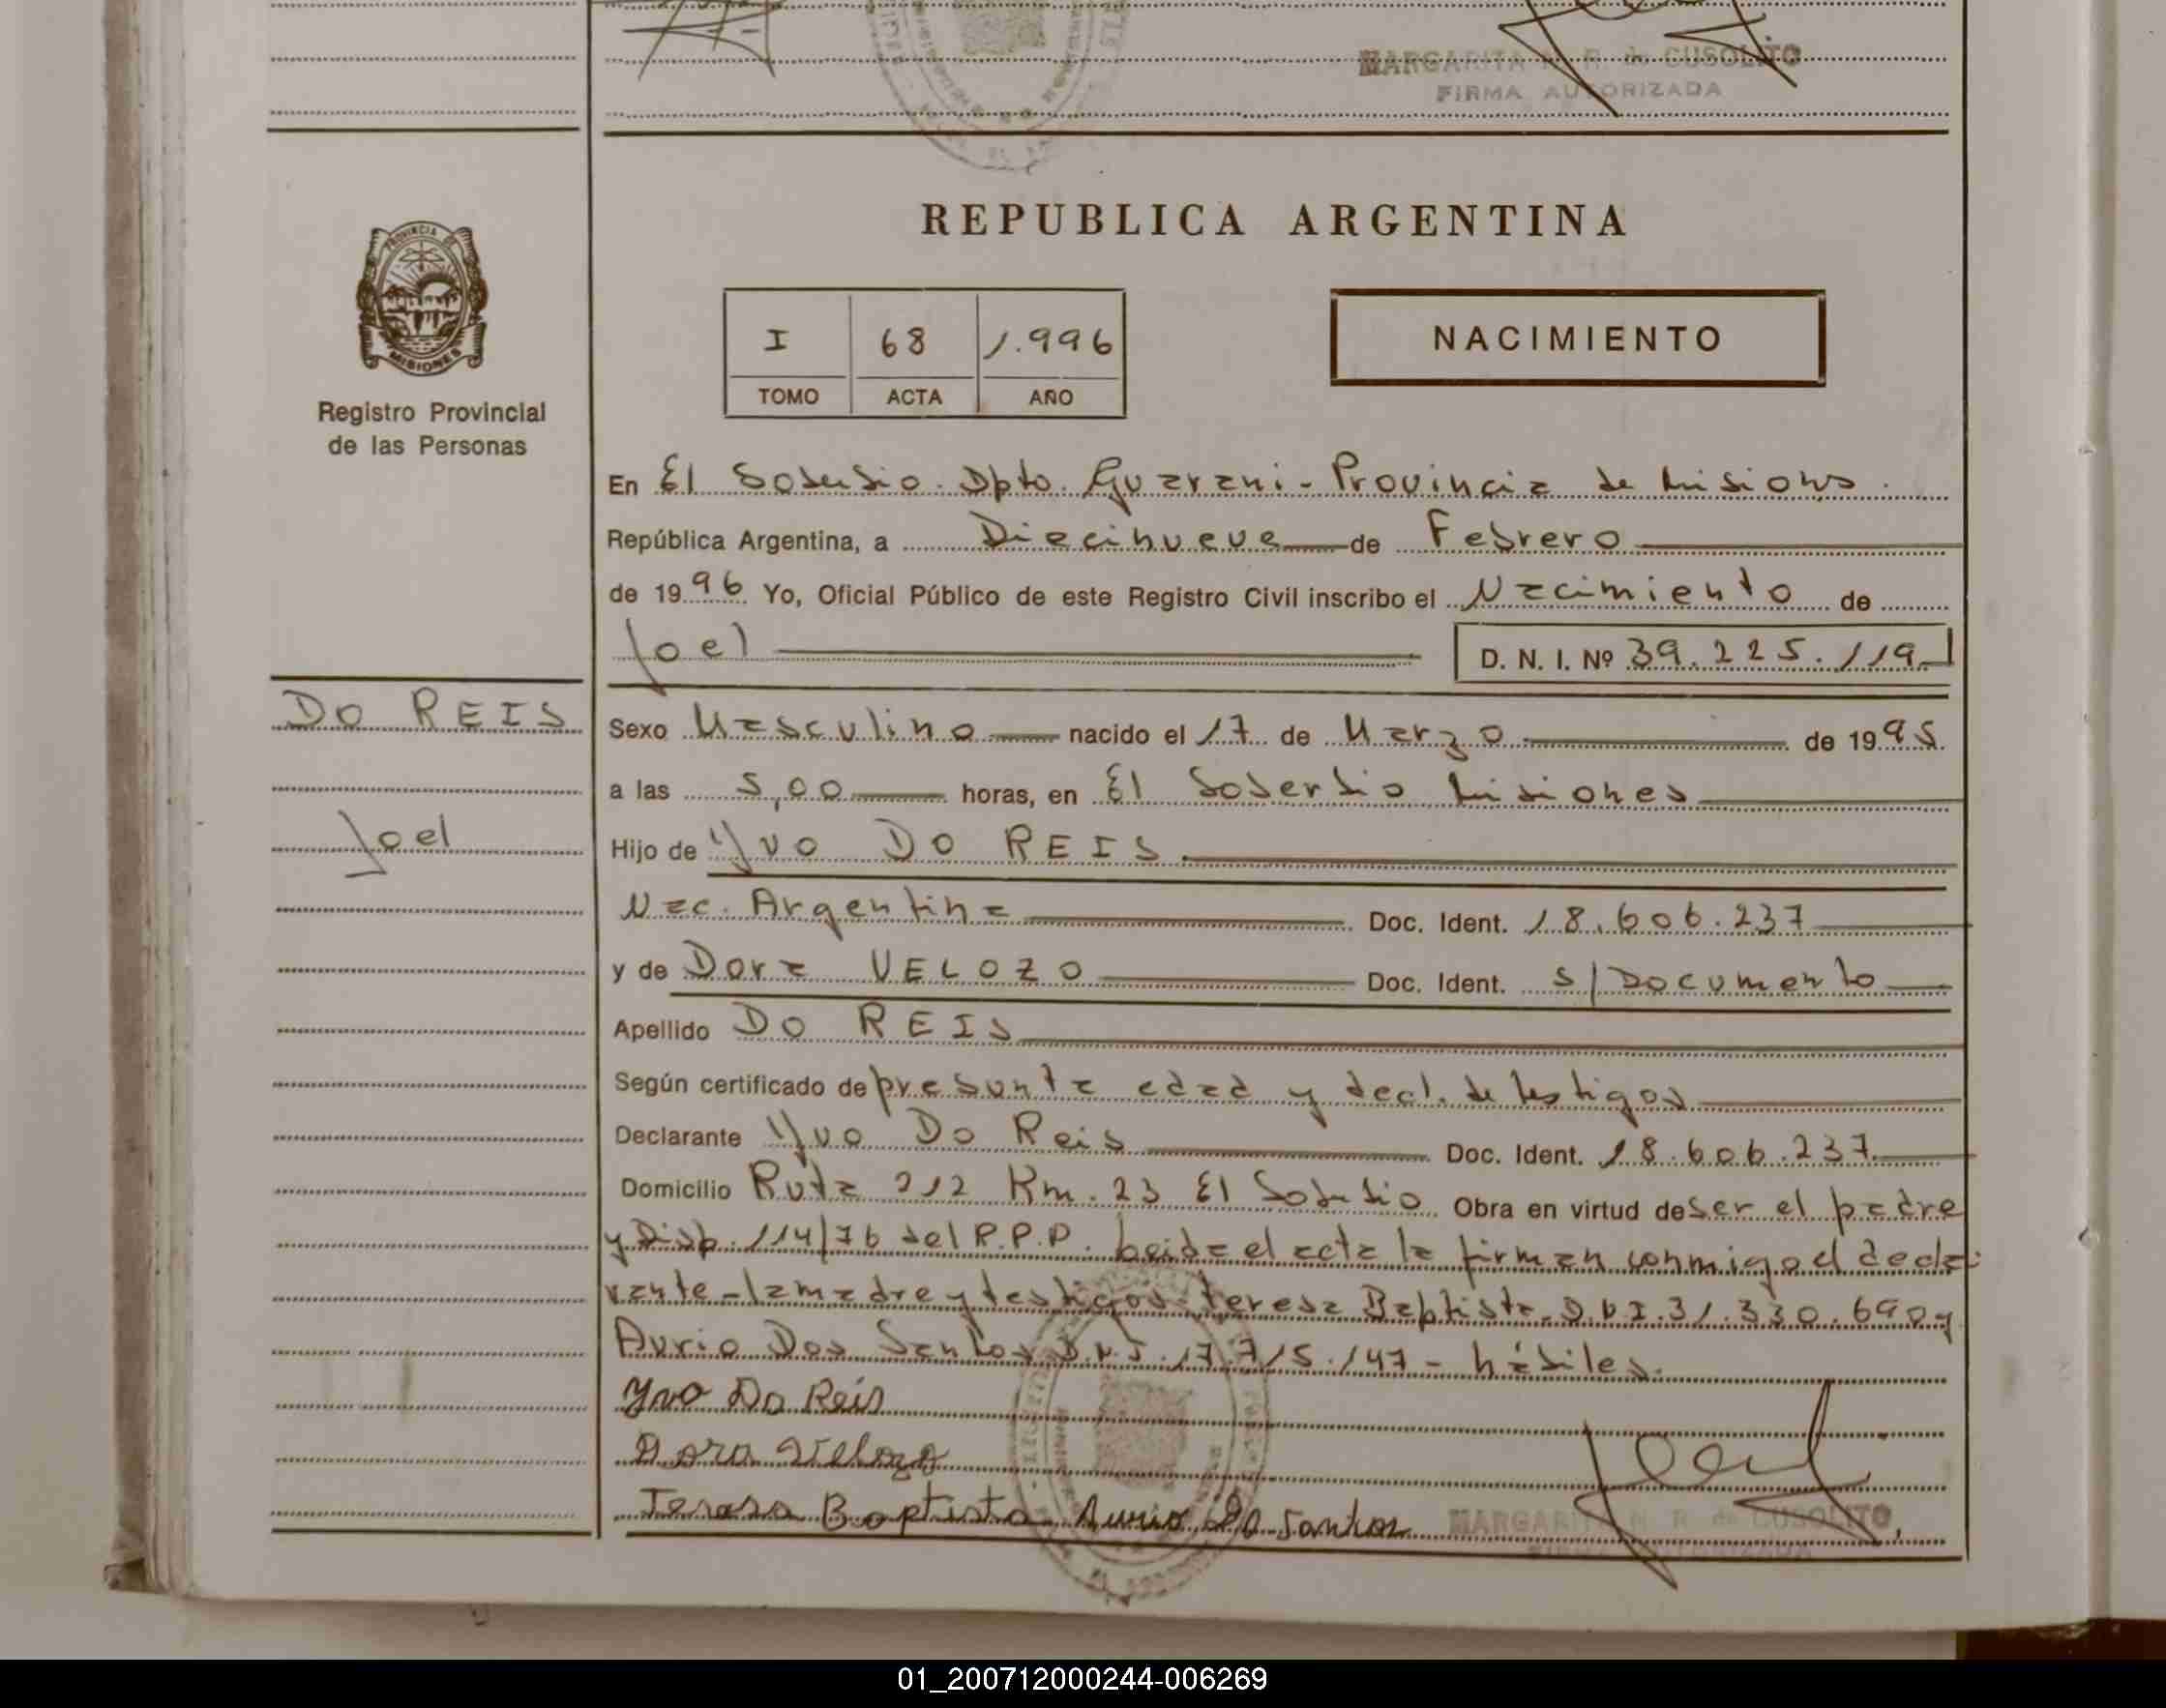 MARGARITA N. R. de CUSOLITO
FIRMA AUTORIZADA
PROVINCIA DE
MISIONES
Registro Provincial
de las Personas
DO REIS
Joel
REPUBLICA ARGENTINA
I 68 1.996
TOMO ACTA AÑO
NACIMIENTO
En El Soberbio. Dpto. Guarani - Provincia de Misiones.
República Argentina, a Diecinueve de Febrero
de 1996 Yo, Oficial Público de este Registro Civil inscribo el Nacimiento de
Joel D. N. I. Nº 39.225.119
Sexo Masculino nacido el 17 de Marzo de 1995.
a las 5,00 horas, en El Soberbio Misiones
Hijo de Yvo DO REIS
Nac. Argentina Doc. Ident. 18.606.237
y de Dora VELOZO Doc. Ident. S/Documento
Apellido DO REIS
Según certificado de presunta edad y decl. de testigos
Declarante Yvo Do Reis Doc. Ident. 18.606.237
Domicilio Ruta 212 Km. 23 El Soberbio Obra en virtud de ser el padre
y Disp. 114/76 del R.P.P. Leida el acta la firman conmigo el decla-
rante - la madre y testigos Teresa Baptista - D.N.I. 31.330.690 y
Aurio Dos Santos D.N.I. 17.715.147 - hábiles.
Yvo Do Reis
Dora Velozo
Teresa Baptista Aurio Do Santos
MARGARITA N. R. de CUSOLITO
FIRMA AUTORIZADA
01_200712000244-006269